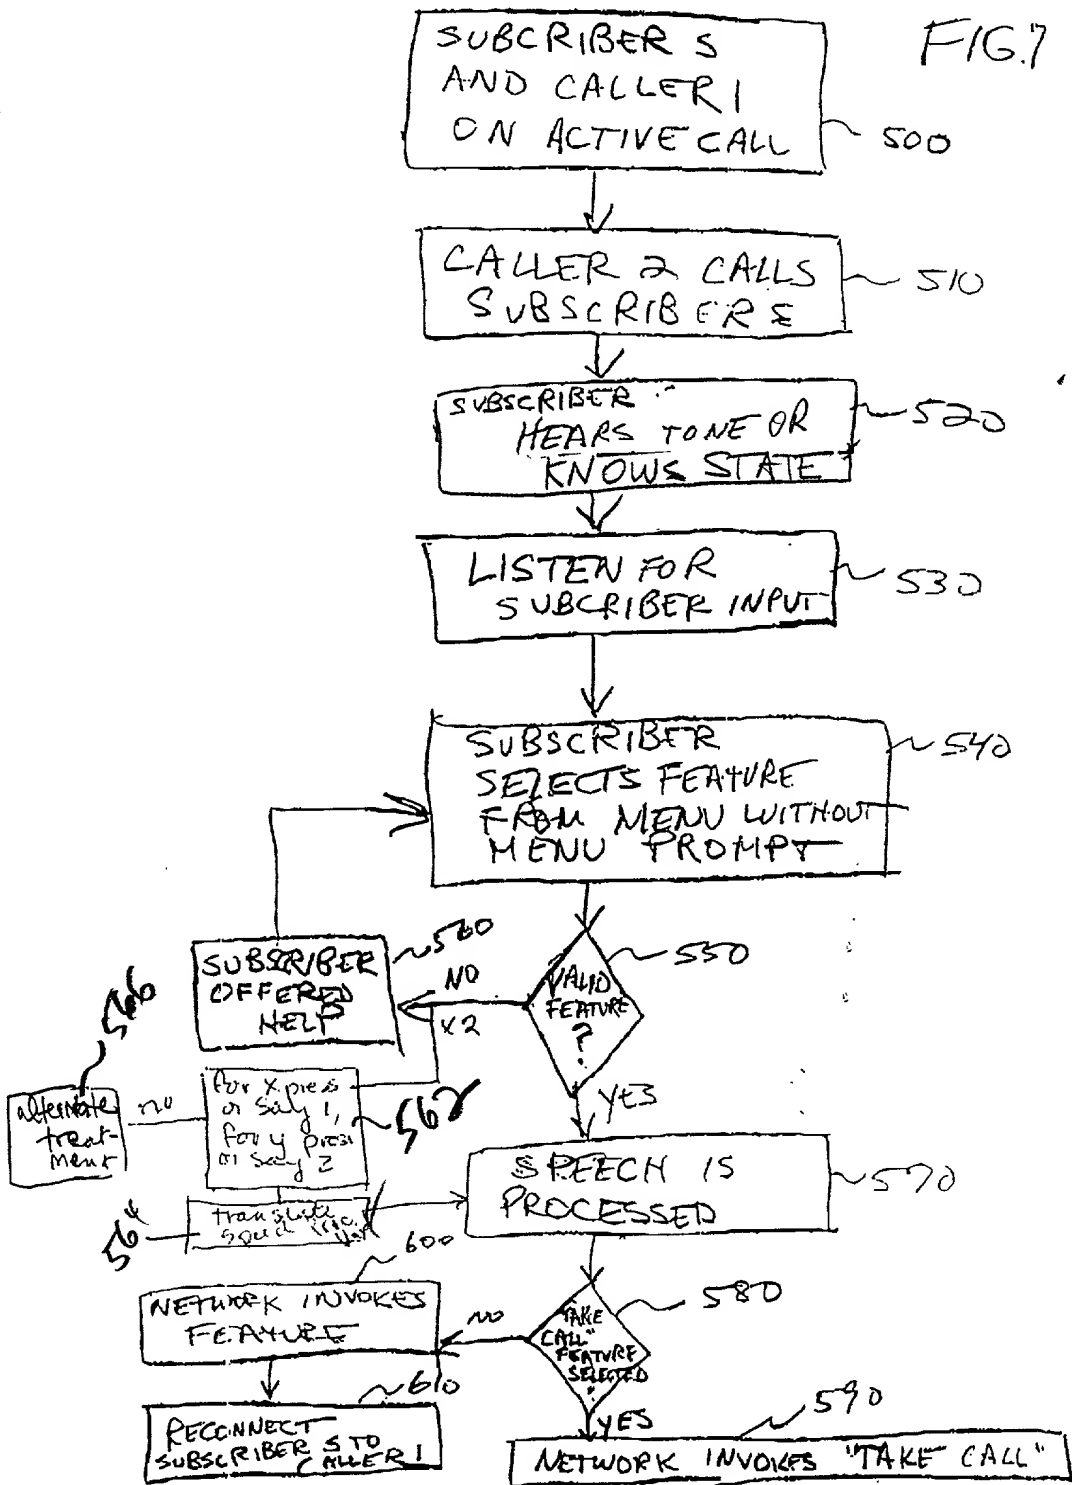 FIG.7
SUBCRIBER S
AND CALLER 1
ON ACTIVE CALL
500
CALLER 2 CALLS
SUBSCRIBER S
510
SUBSCRIBER
HEARS TONE OR
KNOWS STATE
520
LISTEN FOR
SUBCRIBER INPUT
530
SUBSCRIBER
SELECTS FEATURE
FROM MENU WITHOUT
MENU PROMPT
540
VALID
FEATURE
?
550
NO
X2
YES
SUBSCRIBER
OFFERED
HELP
560
566
alternate
treat-
ment
no
for x press
or say 1,
for y press
or say 2
562
translate
564
SPEECH IS
PROCESSED
570
"TAKE
CALL"
FEATURE
SELECTED
?
580
NO
YES
600
NETWORK INVOKES
FEATURE
610
RECONNECT
SUBSCRIBER S TO
CALLER 1
590
NETWORK INVOKES "TAKE CALL"